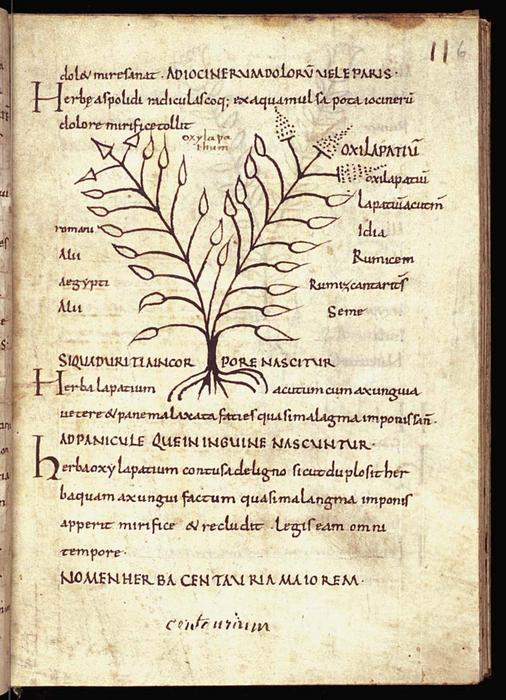 116
dolore mire sanat · AD IOCINERUM DOLORŪ VEL EPARIS ·
Herbe aspolidi radiculas coq; ex aqua mulsa pota iocinerū
dolore mirifice tollit
oxylapa
thum
OXILAPATIŪ
oxilapatiū
Lapatiū acutm̄
romani Idia
Alii Rumicem
Aegypti Rumixcantarits
Alii Seme
SIQUA DURITIA IN COR PORE NASCITUR
Herba lapatium acutum cum axungia
uetere & pane malaxata facies quasi malagma imponis san̄ ·
AD PANICULE QUE IN INGUINE NASCUNTUR ·
herba oxylapatium contusa de ligno sicut du plosit her
ba quam axungui factum quasi malangma imponis
apperit mirifice & recludit · legis eam omni
tempore ·
NOMEN HERBA CENTAURIA MAIOREM ·
centaurium